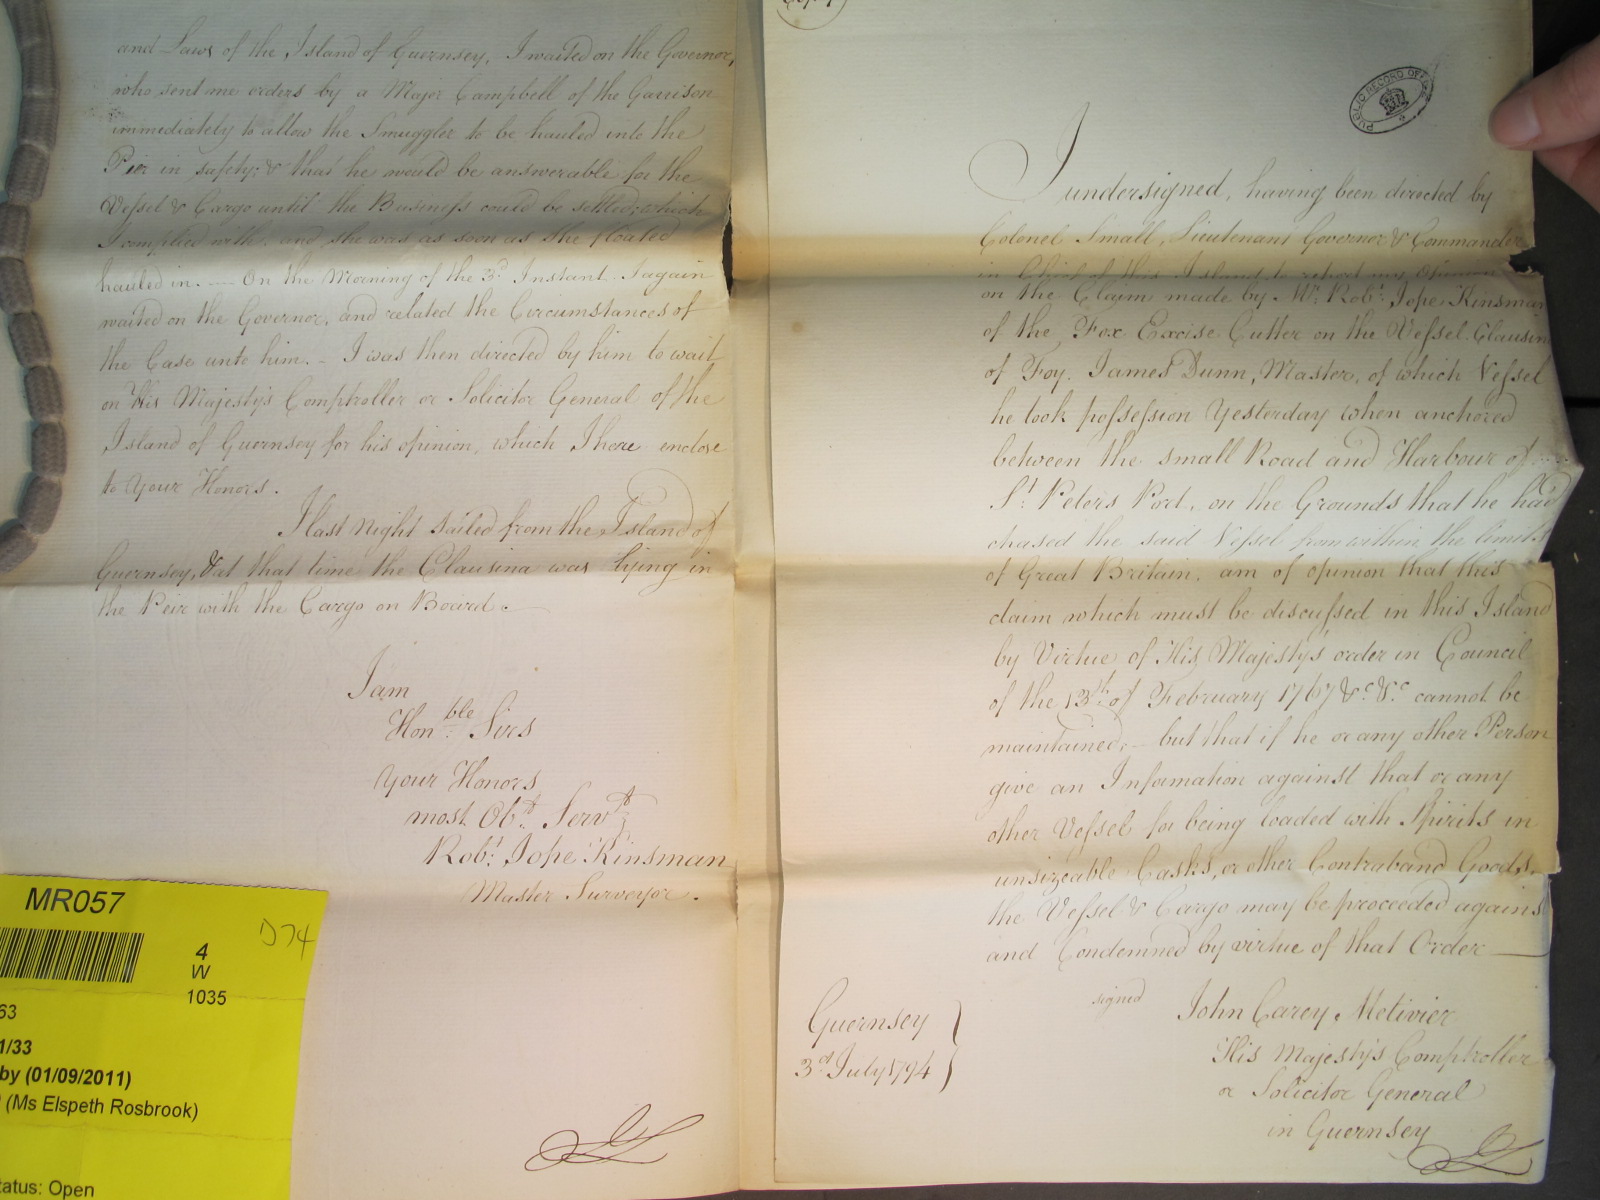 and Laws of the Island of Guernsey, I waited on the Governor,
who sent me orders by a Major Campbell of the Garrison
immediately to allow the Smuggler to be hauled into the
Pier in safety; & that he would be answerable for the
Vessel & Cargo until the Business could be settled; which
I complied with, and she was as soon as she floated
hauled in. — On the Morning of the 3d. Instant I again
waited on the Governor, and related the Circumstances of
the Case unto him. – I was then directed by him to wait
on His Majesty's Comptroller or Solicitor General of the
Island of Guernsey for his opinion, which I here enclose
to Your Honors.
I last night sailed from the Island of
Guernsey, & at that time the Clausina was lying in
the Peir with the Cargo on Board.
I am
Honble. Sirs
Your Honors
most Obt. Servt.
Robt. Jope Kinsman
Master Surveyor.
MR057
D74
4
W
1035
63
1/33
by (01/09/2011)
(Ms Elspeth Rosbrook)
tatus: Open
Copy
PUBLIC RECORD OFFICE
I undersigned, having been directed by
Colonel Small, Lieutenant Governor & Commander
in Chief of this Island to report my Opinion
on the Claim made by Mr. Robt. Jope Kinsman
of the Fox Excise Cutter on the Vessel Clausina
of Foy. James Dunn, Master, of which Vessel
he took possession Yesterday when anchored
between the small Road and Harbour of
St. Peters Port, on the Grounds that he had
chased the said Vessel from within the limits
of Great Britain, am of opinion that this
claim which must be discussed in this Island
by Virtue of His Majesty's order in Council
of the 13th. of February 1767 &c. &c. cannot be
maintained, – but that if he or any other Person
give an Information against that or any
other Vessel for being loaded with Spirits in
unsizeable Casks, or other Contraband Goods,
the Vessel & Cargo may be proceeded against
and Condemned by virtue of that Order
signed John Carey Metivier
His Majesty's Comptroller
or Solicitor General
in Guernsey
Guernsey
3d July 1794